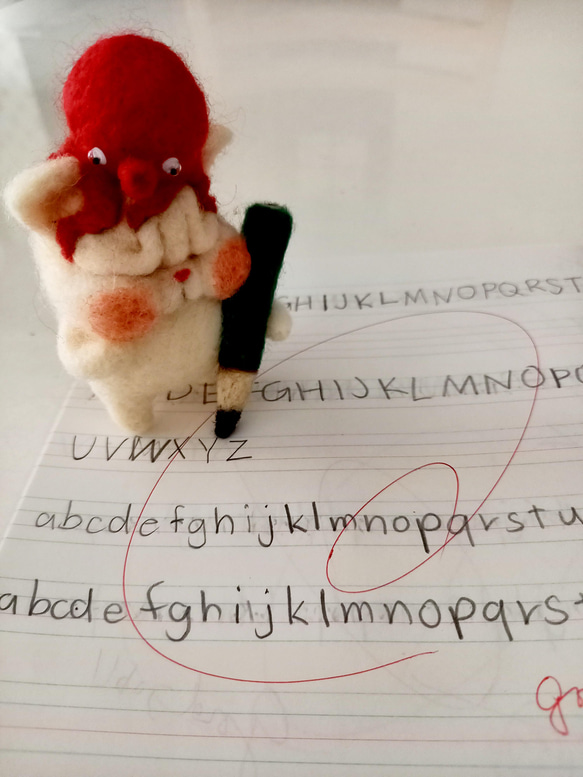 GHIJKLMNOPQRST
DEFGHIJKLMNOPQ
UVWXYZ
abcdefghijklmnopqrstu
abcdefghijklmnopqrst